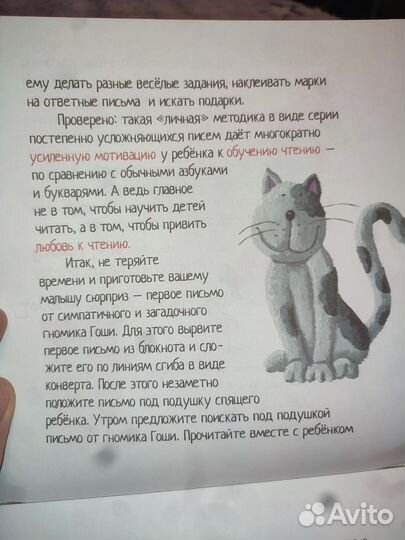 ему делать разные весёлые задания, наклеивать марки
на ответные письма и искать подарки.
Проверено: такая «личная» методика в виде серии
постепенно усложняющихся писем даёт многократно
усиленную мотивацию у ребёнка к обучению чтению —
по сравнению с обычными азбуками
и букварями. А ведь главное
не в том, чтобы научить детей
читать, а в том, чтобы привить
любовь к чтению.
Итак, не теряйте
времени и приготовьте вашему
малышу сюрприз — первое письмо
от симпатичного и загадочного
гномика Гоши. Для этого вырвите
первое письмо из блокнота и сло-
жите его по линиям сгиба в виде
конверта. После этого незаметно
положите письмо под подушку спящего
ребёнка. Утром предложите поискать под подушкой
письмо от гномика Гоши. Прочитайте вместе с ребёнком
Avito